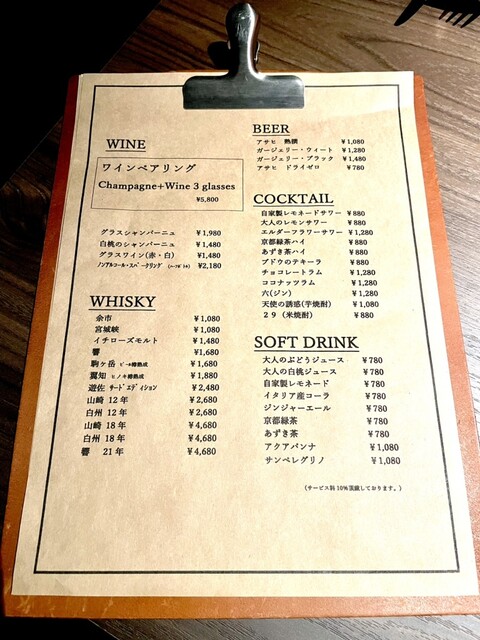 WINE
ワインペアリング
Champagne+Wine 3 glasses
¥5,800
グラスシャンパーニュ ¥1,980
白桃のシャンパーニュ ¥1,480
グラスワイン(赤・白) ¥1,480
ノンアルコール・スパークリング (ハーフボトル) ¥2,180
WHISKY
余市 ¥1,080
宮城峡 ¥1,080
イチローズモルト ¥1,480
響 ¥1,680
駒ヶ岳 ビール樽熟成 ¥1,680
翼知 ヒノキ樽熟成 ¥1,880
遊佐 サードエディション ¥2,480
山崎 12年 ¥2,680
白州 12年 ¥2,680
山崎 18年 ¥4,680
白州 18年 ¥4,680
響 21年 ¥4,680
BEER
アサヒ 熟撰 ¥1,080
ガージェリー・ウィート ¥1,280
ガージェリー・ブラック ¥1,480
アサヒ ドライゼロ ¥780
COCKTAIL
自家製レモネードサワー ¥880
大人のレモンサワー ¥880
エルダーフラワーサワー ¥1,280
京都緑茶ハイ ¥880
あずき茶ハイ ¥880
ブドウのテキーラ ¥880
チョコレートラム ¥1,280
ココナッツラム ¥1,280
六(ジン) ¥1,280
天使の誘惑(芋焼酎) ¥1,080
29(米焼酎) ¥880
SOFT DRINK
大人のぶどうジュース ¥780
大人の白桃ジュース ¥780
自家製レモネード ¥780
イタリア産コーラ ¥780
ジンジャーエール ¥780
京都緑茶 ¥780
あずき茶 ¥780
アクアパンナ ¥1,080
サンペレグリノ ¥1,080
(サービス料10%頂戴しております。)